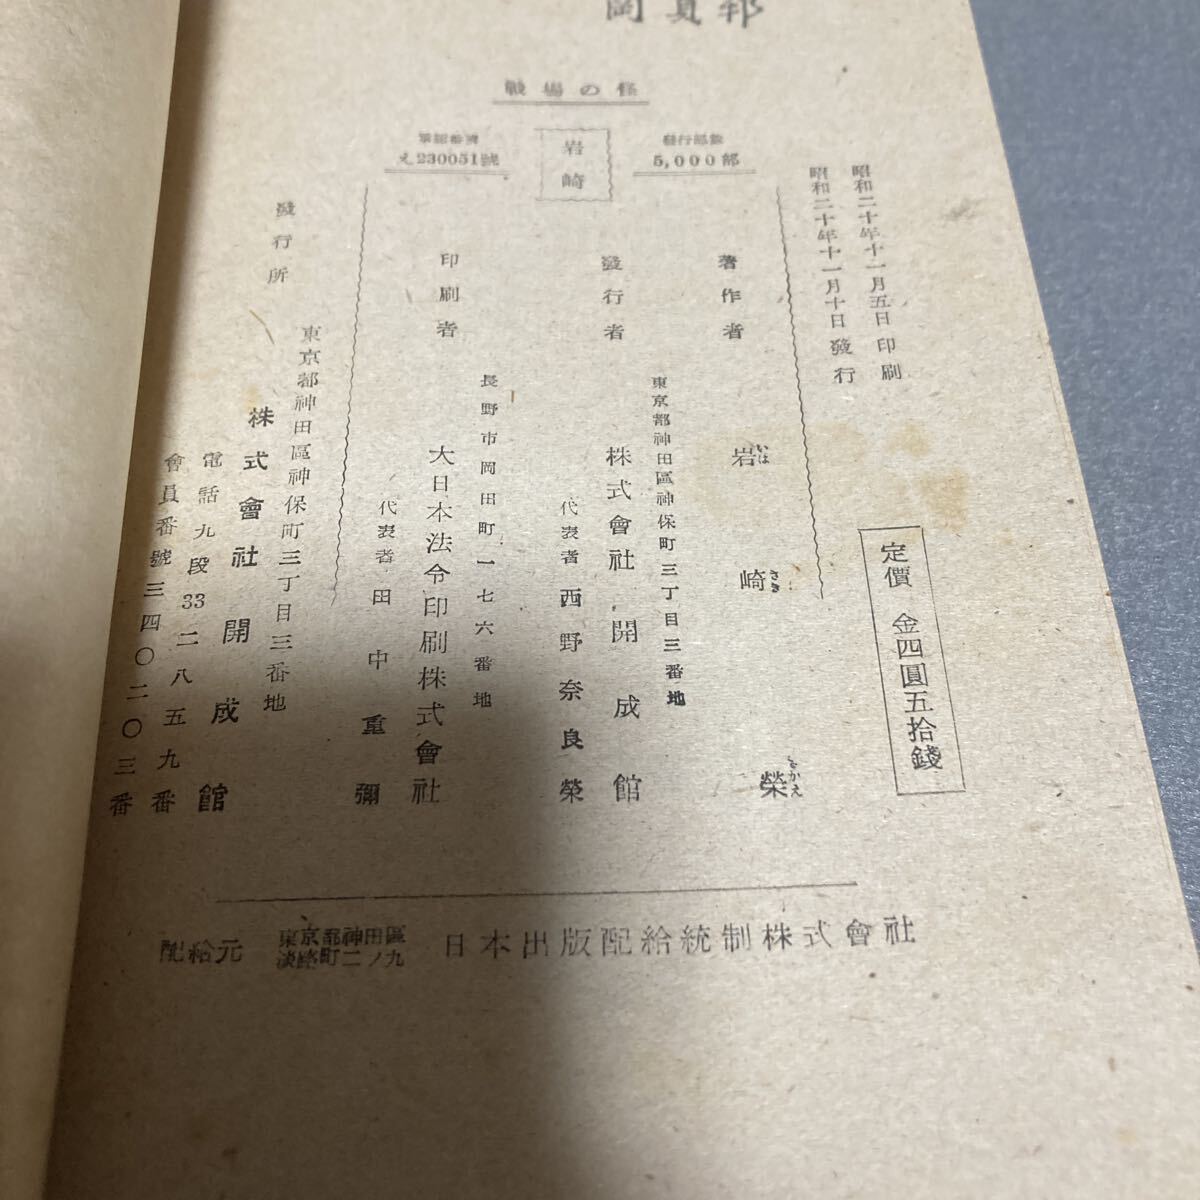 戰場の怪
え230051號
岩崎
發行部數
5,000部
昭和二十年十一月五日印刷
昭和二十年十一月十日發行
定價 金四圓五拾錢
著作者 岩崎榮
いは さき さかえ
東京都神田區神保町三丁目三番地
發行者 株式會社開成館
代表者 西野奈良榮
長野市岡田町一七六番地
印刷者 大日本法令印刷株式會社
代表者 田中重彌
東京都神田區神保町三丁目三番地
發行所 株式會社開成館
電話九段33二八五九番
會員番號三四〇二〇三番
配給元 東京都神田區
淡路町二ノ九
日本出版配給統制株式會社